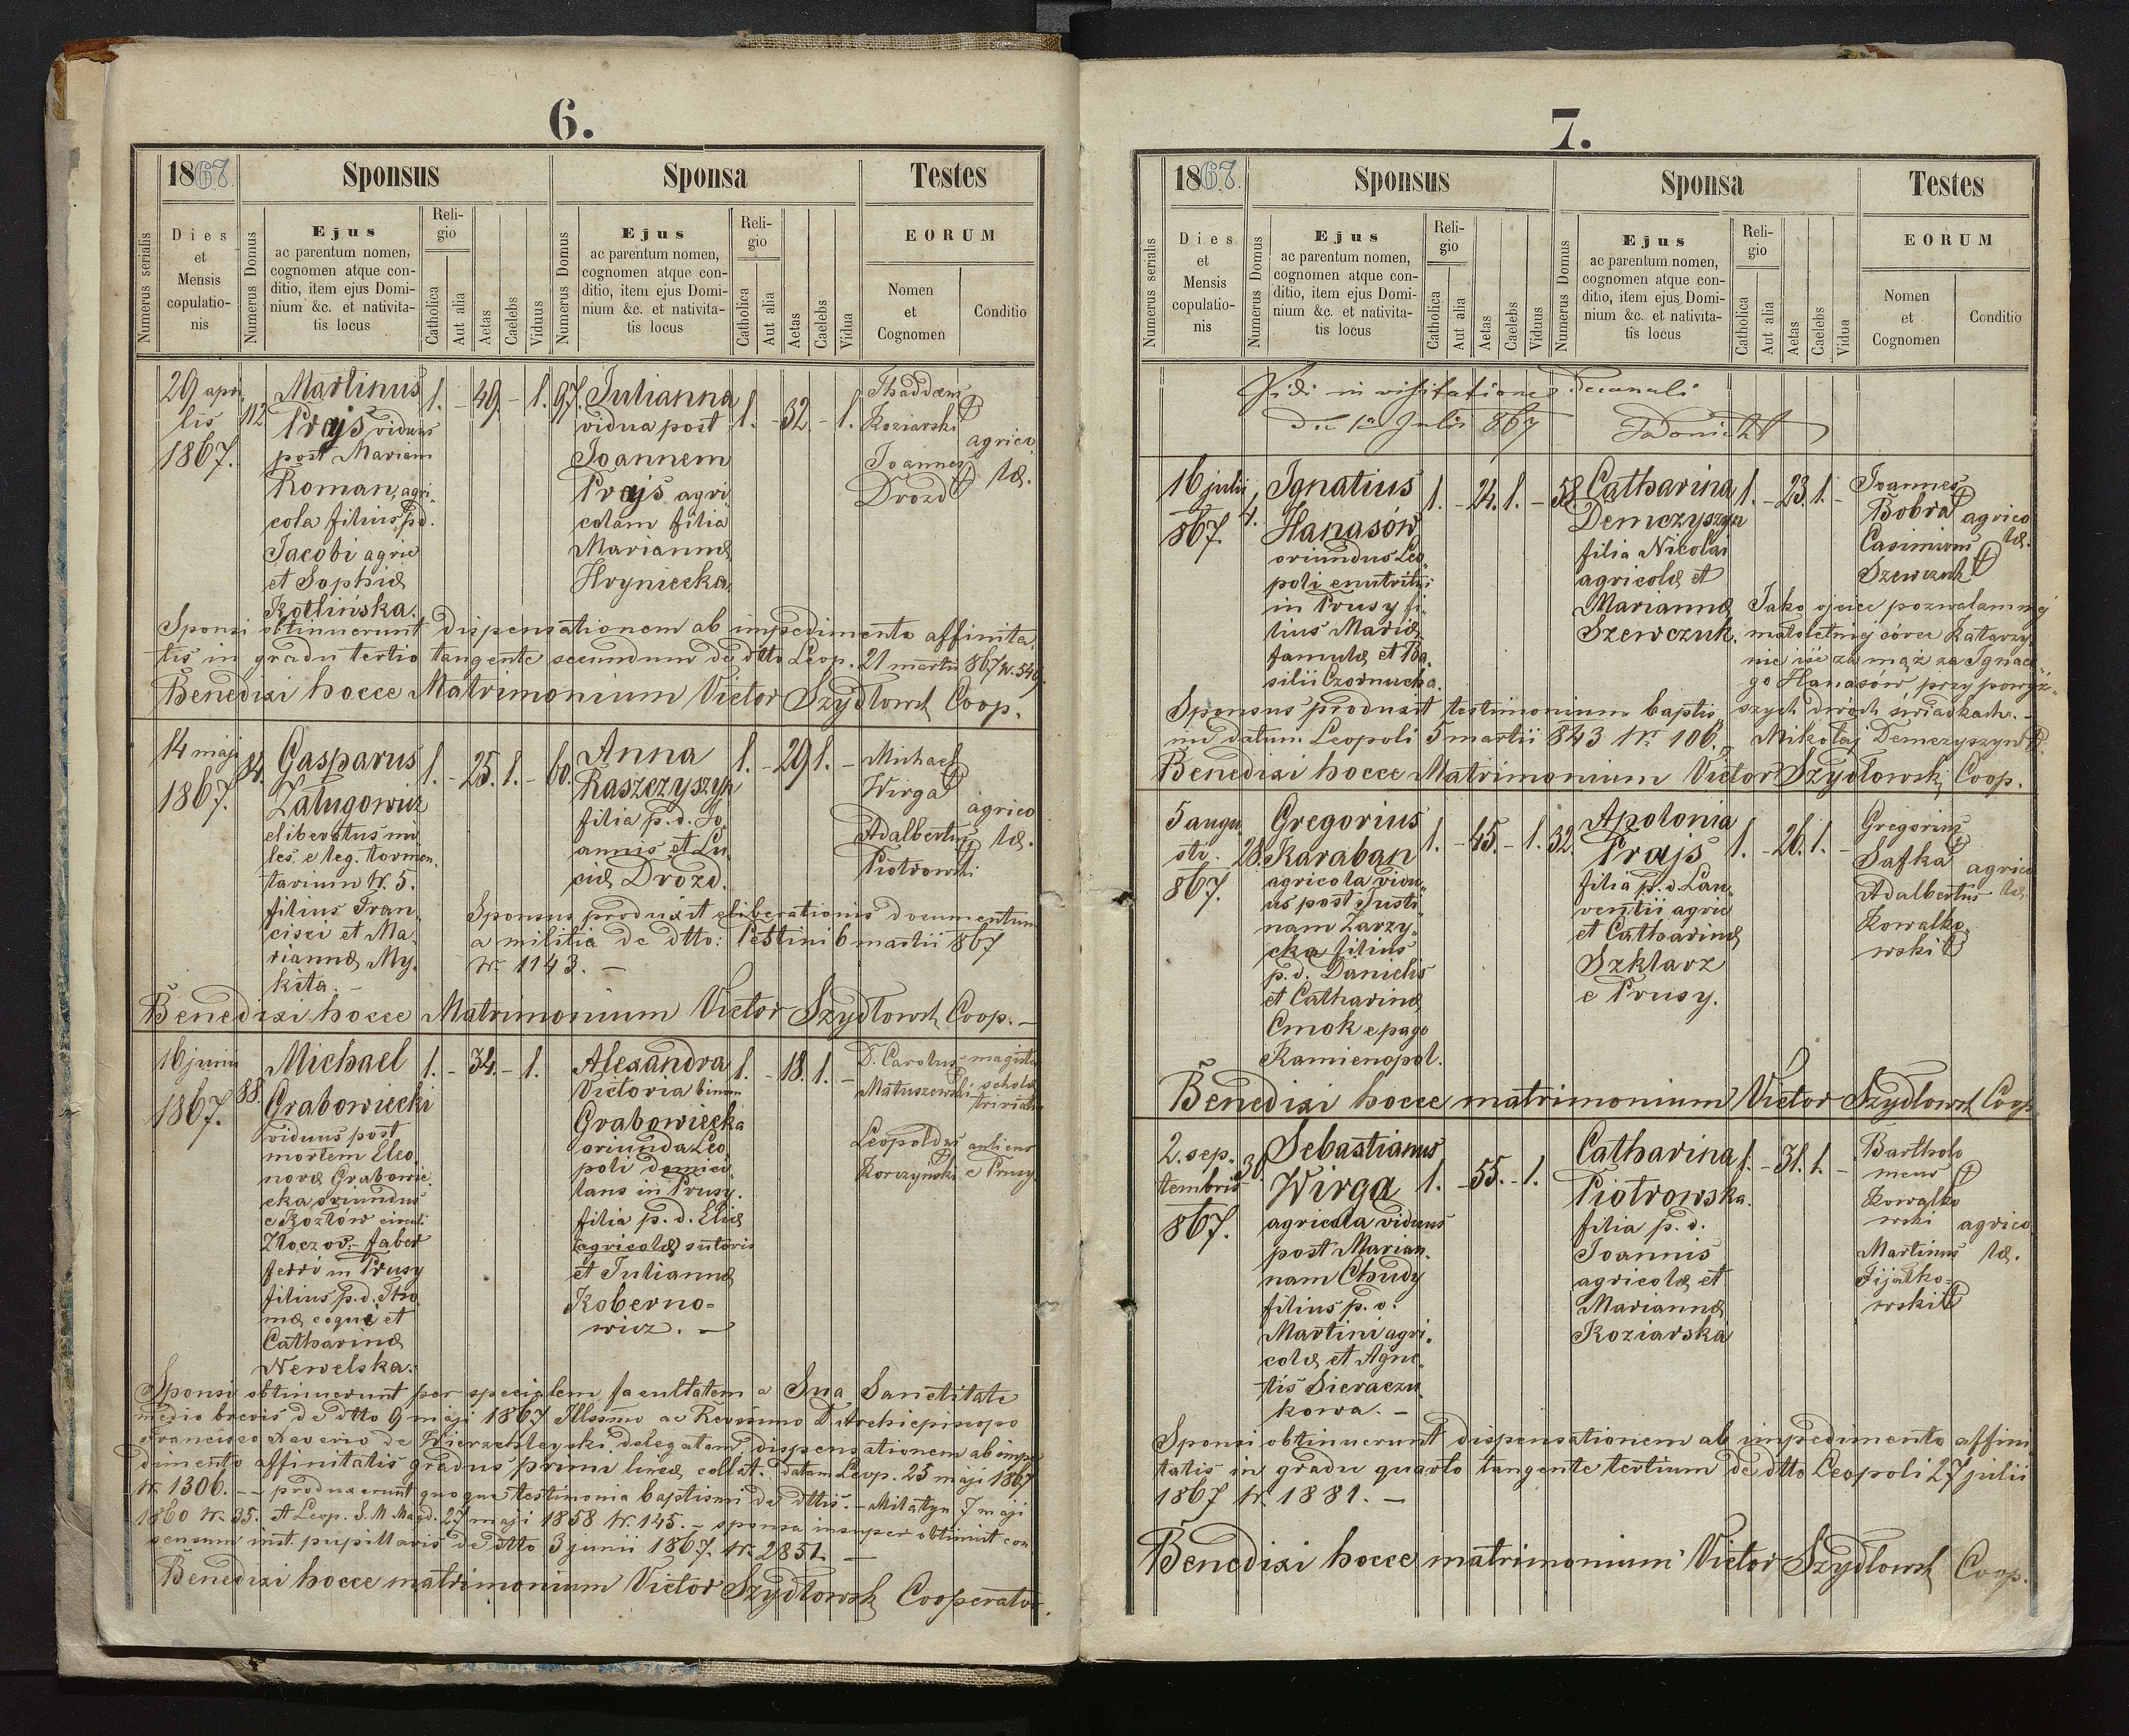 6.
1867.
Sponsus
Sponsa
Testes
Numerus serialis
Dies
et
Mensis
copulatio-
nis
Numerus Domus
Ejus
ac parentum nomen,
cognomen atque con-
ditio, item ejus Domi-
nium &c. et nativita-
tis locus
Reli-
gio
Catholica
Aut alia
Aetas
Caelebs
Viduus
Numerus Domus
Ejus
ac parentum nomen,
cognomen atque con-
ditio, item ejus Domi-
nium &c. et nativita-
tis locus
Reli-
gio
Catholica
Aut alia
Aetas
Caelebs
Vidua
EORUM
Nomen
et
Cognomen
Conditio
29 apri
lis
1867.
112
Martinus
Prajs viduus
post Mariam
Roman, agri,
cola filius p.d.
Jacobi agric
et Sophiæ
Kotlińska.
1. - 49. - 1.
97.
Julianna
vidua post
Joannem
Prajs agri
colam filia
Mariannæ
Hryniecka.
1. - 32. - 1.
Thaddæus
Koziarski
Joannes
Drozd
agrico
læ.
Sponsi obtinuerunt dispensationem ab impedimento affinita
tis in gradu tertio tangente secundum de dtto Leop. 21 martii 867 N. 549.
Benedixi hocce Matrimonium Victor Szydłowsk Coop.
14 maji
1867.
84.
Gasparus
Załugowicz
eliberatus mi
les e leg. tormen,
tarium N. 5.
filius Fran,
cisci et Ma,
riannæ My,
kita. -
1. - 25. 1. -
60.
Anna
Raszczyszyn
filia p. d. Jo,
annis et Lu
ciæ Drozd.
1. - 29 1. -
Michael
Wirga
Adalbertus
Piotrowski
agrico
læ.
Sponsus produxit eliberationis documentum
a militia de dtto: Pestini 6 martii 867
N. 1143. -
Benedixi hocce Matrimonium Victor Szydłowsk Coop. -
16 junii
1867.
88.
Michael
Grabowiecki
viduus post
mortem Eleo,
noræ Grabowie,
cka oriundus
e Kozłów circuli
Złoczov.- faber
ferri in Prusy
filius p.d. Tho
mæ coqui et
Catharinæ
Newelska.
1. - 34. - 1.
Alexandra
Victoria binom
Grabowiecka
oriunda Leo,
poli domici
lans in Prusy.
filia p. d. Eliæ
(agricolæ) sutoris
et Juliannæ
Koberno-
wicz. -
1. - 18. 1. -
D. Carolus
Matuszewski
magister
scholæ
trivialis
Leopoldus
Korczyński
e Prusy.
Sponsi obtinuerunt per specialem facultatem a Sua Sanctitate
medio brevis de dtto 9 maji 1867 Illssmo ac Revssmo D. Archiepiscopo
Francisco Xaverio de Wierzchleyski delegatam, dispensationem ab impe
dimento affinitatis gradus primi lineæ collat. datam Leop. 25 maji 1867
N. 1306. - - produxerunt quoque testimonia baptismi de dttis. - Milatyn 7 maji
1860 N. 35. et Leop. S. M. Magd. 27 maji 1858 N. 145. - sponsa insuper obtinuit con
sensum inst. pupillaris de dtto 3 junii 1867. N. 2851. -
Benedixi hocce matrimonium Victor Szydłowsk Cooperator.
7.
1867.
Sponsus
Sponsa
Testes
Numerus serialis
Dies
et
Mensis
copulatio-
nis
Numerus Domus
Ejus
ac parentum nomen,
cognomen atque con-
ditio, item ejus Domi-
nium &c. et nativita-
tis locus
Reli-
gio
Catholica
Aut alia
Aetas
Caelebs
Viduus
Numerus Domus
Ejus
ac parentum nomen,
cognomen atque con-
ditio, item ejus Domi-
nium &c. et nativita-
tis locus
Reli-
gio
Catholica
Aut alia
Aetas
Caelebs
Vidua
EORUM
Nomen
et
Cognomen
Conditio
Vidi in visitatione Decanali
Julii 867
16 julii
867.
4.
Ignatius
Hanasów
oriundus Leo,
poli enutritus
in Prusy fi,
lius Mariæ
famulæ et Ba,
silii Czornucha.
1. - 24. 1. -
58.
Catharina
Demczyszyn
filia Nicolai
agricolæ et
Mariannæ
Szewczuk.
1. - 23. 1. -
Joannes
Bobra
Casimirus
Szewczuk
agrico
læ.
Jako ojciec pozwalam mej
małoletniej córce Katarzy
nie iść za mąż za Ignace,
go Hanasów, przy powyż,
szych dwóch świadkach. -
Mikołaj Demczyszyn
Sponsus produxit testimonium baptis,
mi datum Leopoli 5 martii 843 N. 106.
Benedixi hocce Matrimonium Victor Szydłowsk Coop.
5 augu
sti.
867.
28.
Gregorius
Karaban
agricola vidu,
us post Justi
nam Zarzy,
cka filius
p. d. Danielis
et Catharinæ
Cmok e pago
Kamienopol.
1. - 45. - 1.
32.
Apolonia
Prajs
filia p. d. Lau,
rentii agric
et Catharinæ
Szklarz
e Prusy.
1. - 26. 1. -
Gregorius
Safka
Adalbertus
Kowalko,
wski
agrico
læ.
Benedixi hocce matrimonium Victor Szydłowsk Coop
2. sep,
tembris
867.
36.
Sebastianus
Wirga
agricola viduus
post Marian,
nam Chudy
filius p. d.
Martini agri,
colæ et Agne,
tis Sieraczu
kowa. -
1. - 55. - 1.
Catharina
Piotrowska.
filia p. d.
Joannis
agricolæ et
Mariannæ
Koziarska
1. - 31. 1. -
Bartholo
meus
Kowalko
wski
Martinus
Fijałko-
wski
agrico
læ.
Sponsi obtinuerunt dispensationem ab impedimento affini
tatis in gradu quarto tangente tertium de dtto Leopoli 27 julii
1867 N. 1881. -
Benedixi hocce matrimonium Victor Szydłowsk Coop.